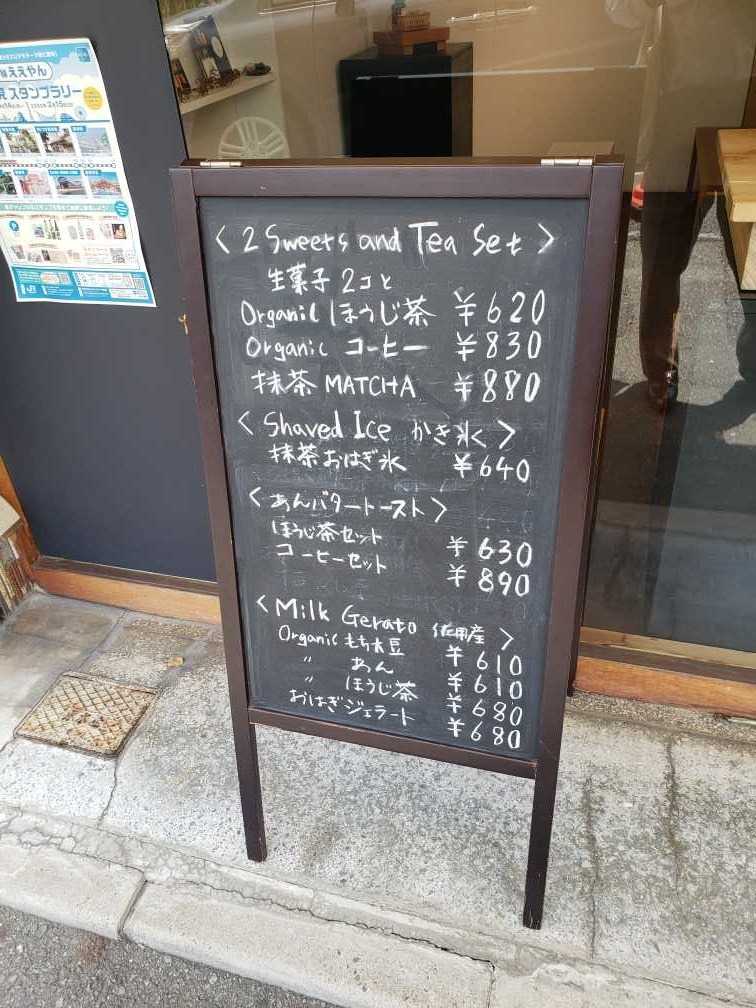 ええやん
スタンプラリー
< 2 Sweets and Tea Set >
生菓子 2コと
Organic ほうじ茶 ¥620
Organic コーヒー ¥830
抹茶 MATCHA ¥880
< Shaved Ice かき氷 >
抹茶おはぎ氷 ¥640
< あんバタートースト >
ほうじ茶セット ¥630
コーヒーセット ¥890
< Milk Gerato 佐用産 >
Organic もち大豆 ¥610
〃 あん ¥610
〃 ほうじ茶 ¥680
おはぎジェラート ¥680